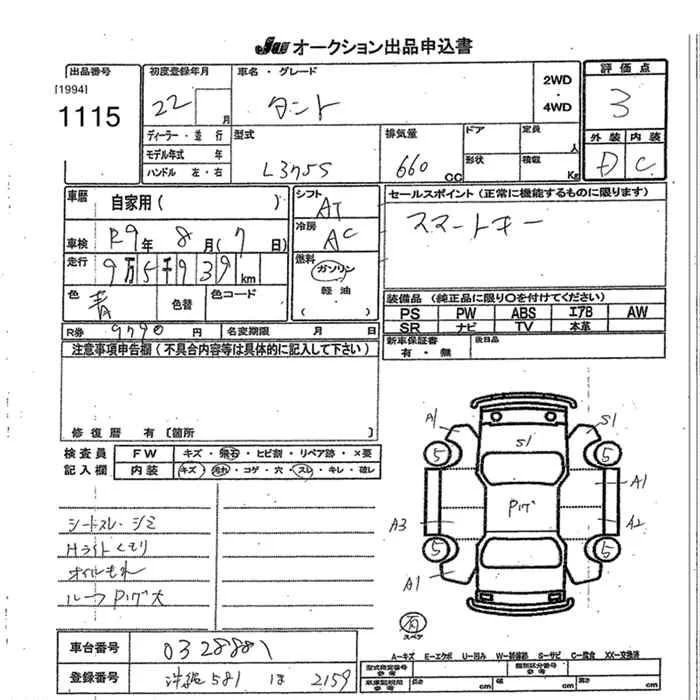 JU オークション出品申込書
出品番号
[1994]
1115
初度登録年月
22 月
車名・グレード
タント
2WD
・
4WD
評価点
3
外装 内装
D C
ディーラー・並行
モデル年式 年
ハンドル 左・右
型式
L375S
排気量
660 CC
ドア
定員
人
形状
積載
Kg
車歴
自家用( )
シフト
AT
セールスポイント(正常に機能するものに限ります)
スマートキー
車検 R9年 8月(7日)
冷房
AC
走行
9万5千939km
燃料
ガソリン
軽油
( )
色
青
色替
色コード
装備品 (純正品に限り○を付けてください)
PS PW ABS エアB AW
SR ナビ TV 本革
R券 9790円
名変期限 月 日
新車保証書
有・無
後日品
注意事項申告欄(不具合内容等は具体的に記入して下さい)
修復歴 有〔箇所
検査員
記入欄
FW キズ・飛石・ヒビ割・リペア跡・×要
内装 キズ・汚れ・コゲ・穴・スレ・キレ・破レ
シートスレ・シミ
Hライトくもり
オイルもれ
ルーフPハゲ大
A1
S1
S1
5
5
A1
Pハゲ
A3
A2
5
5
A1
内
スペア
車台番号
0328881
登録番号
沖縄 581 ほ 2159
A−キズ E−エクボ U−凹み W−補修跡 S−サビ C−腐食 XX−交換済
型式指定番号
参考
類別区分番号
参考
長さ cm 幅 cm 高さ cm